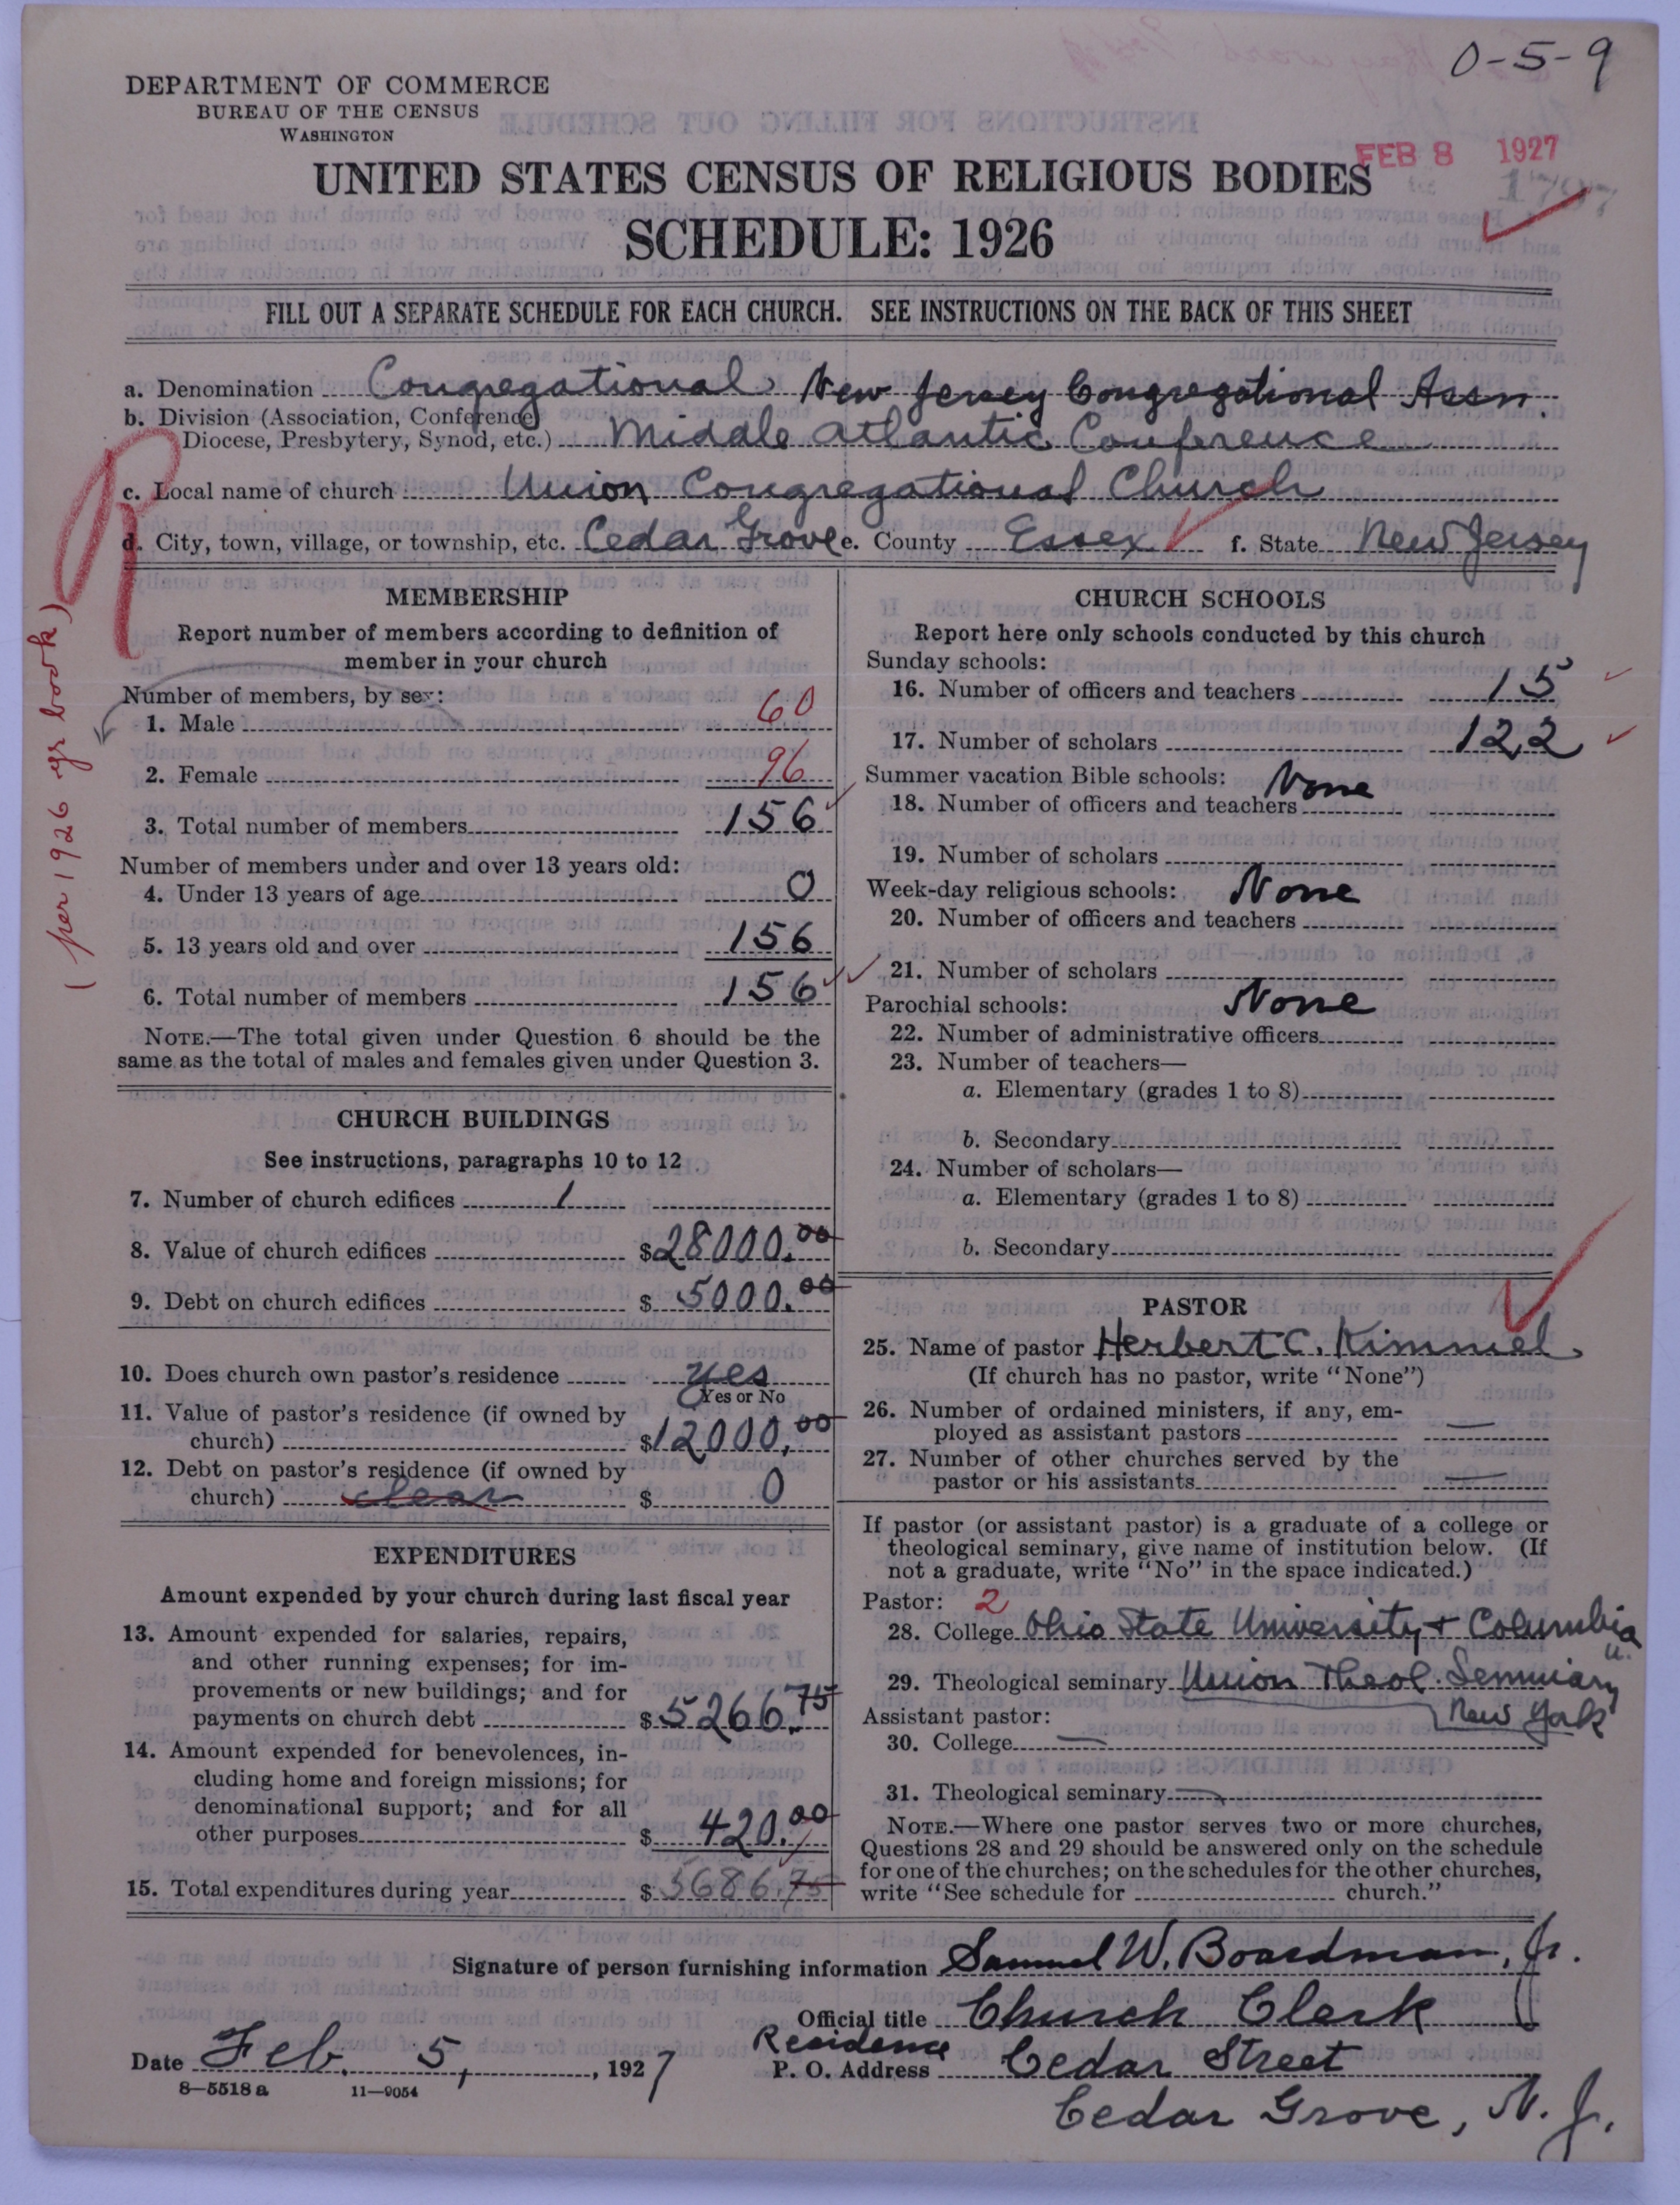 0-5-9
DEPARTMENT OF COMMERCE
BUREAU OF THE CENSUS
WASHINGTON
FEB 8 1927
UNITED STATES CENSUS OF RELIGIOUS BODIES
SCHEDULE: 1926
FILL OUT A SEPARATE SCHEDULE FOR EACH CHURCH. SEE INSTRUCTIONS ON THE BACK OF THIS SHEET
a. Denomination Congregational New Jersey Congregational Assn.
b. Division (Association, Conference
Diocese, Presbytery, Synod, etc.) Middle Atlantic Conference
c. Local name of church Union Congregational Church
d. City, town, village, or township, etc. Cedar Grove e. County Essex f. State New Jersey
(per 1926 yr book)
MEMBERSHIP
Report number of members according to definition of
member in your church
Number of members, by sex:
1. Male 60
2. Female 96
3. Total number of members 156
Number of members under and over 13 years old:
4. Under 13 years of age 0
5. 13 years old and over 156
6. Total number of members 156
NOTE.—The total given under Question 6 should be the
same as the total of males and females given under Question 3.
CHURCH BUILDINGS
See instructions, paragraphs 10 to 12
7. Number of church edifices 1
8. Value of church edifices $28000.00
9. Debt on church edifices $5000.00
10. Does church own pastor's residence yes
Yes or No
11. Value of pastor's residence (if owned by
church) $12000.00
12. Debt on pastor's residence (if owned by
church) clear $0
EXPENDITURES
Amount expended by your church during last fiscal year
13. Amount expended for salaries, repairs,
and other running expenses; for im-
provements or new buildings; and for
payments on church debt $5266.75
14. Amount expended for benevolences, in-
cluding home and foreign missions; for
denominational support; and for all
other purposes $420.00
15. Total expenditures during year $5686.75
CHURCH SCHOOLS
Report here only schools conducted by this church
Sunday schools:
16. Number of officers and teachers 15
17. Number of scholars 122
Summer vacation Bible schools: None
18. Number of officers and teachers
19. Number of scholars
Week-day religious schools: None
20. Number of officers and teachers
21. Number of scholars
Parochial schools: None
22. Number of administrative officers
23. Number of teachers—
a. Elementary (grades 1 to 8)
b. Secondary
24. Number of scholars—
a. Elementary (grades 1 to 8)
b. Secondary
PASTOR
25. Name of pastor Herbert C. Kimmel
(If church has no pastor, write "None")
26. Number of ordained ministers, if any, em-
ployed as assistant pastors —
27. Number of other churches served by the
pastor or his assistants —
If pastor (or assistant pastor) is a graduate of a college or
theological seminary, give name of institution below. (If
not a graduate, write "No" in the space indicated.)
Pastor: 2
28. College Ohio State University + Columbia U.
29. Theological seminary Union Theol. Seminary
New York
Assistant pastor:
30. College —
31. Theological seminary —
NOTE.—Where one pastor serves two or more churches,
Questions 28 and 29 should be answered only on the schedule
for one of the churches; on the schedules for the other churches,
write "See schedule for church."
Signature of person furnishing information Samuel W. Boardman, Jr.
Official title Church Clerk
Residence
Date Feb. 5, 1927 P. O. Address Cedar Street
8—5518a 11—9054
Cedar Grove, N. J.